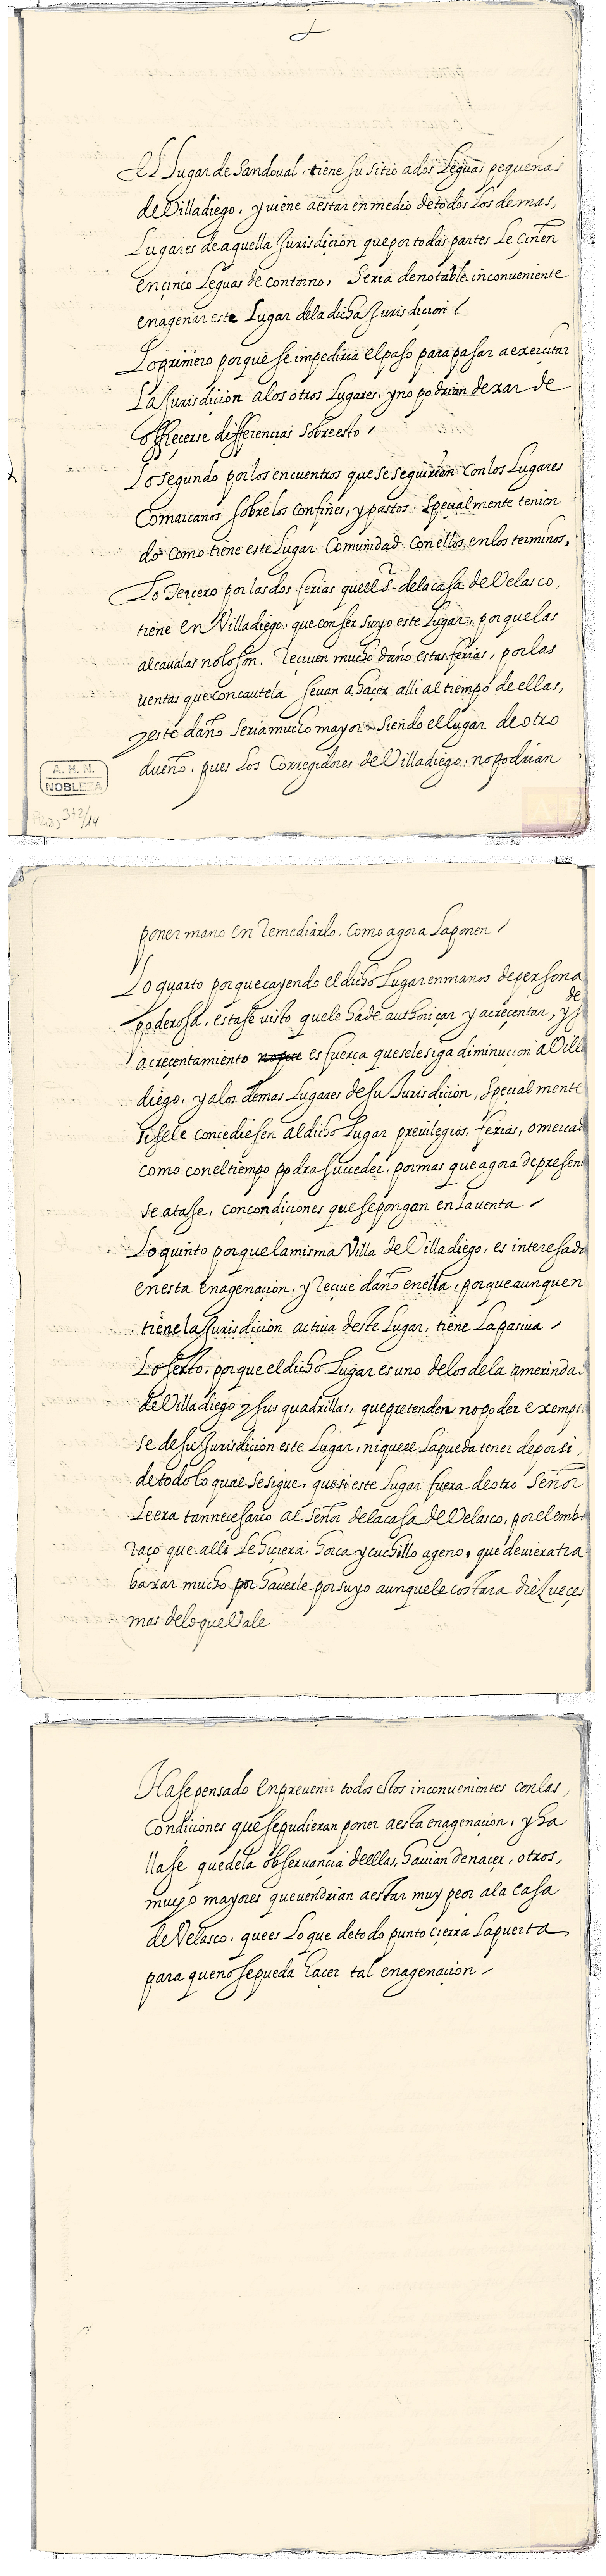 El Lugar de Sandoual, tiene su sitio a dos Leguas pequeñas
de Villadiego, y viene a estar en medio de todos Los demas,
Lugares de aquella Jurisdiçion que por todas partes Le çiñen
en çinco Leguas de contorno, Seria de notable inconueniente
enagenar este Lugar dela dicha Jurisdiçion /
Lo primero porque se impediria el paso para pasar a exerçitar
La Jurisdiçion a los otros Lugares, y no podrian dexar de
offreçerse differencias sobre esto /
Lo segundo por los encuentros que se seguirian con los Lugares
Comarcanos sobre los Confines, y pastos. Speçialmente tenien
do como tiene este Lugar Comunidad con ellos en los terminos,
Lo Tercero por las dos ferias que el S.r dela casa de Velasco,
tiene en Villadiego, que con ser suyo este Lugar, porque las
alcaualas no lo son, Reçiuen mucho daño estas ferias, por las
ventas que con cautela se uan a haçer alli al tiempo de ellas,
y este daño seria mucho mayor siendo el lugar de otro
dueño, pues Los Corregidores de Villadiego no podrian
A. H. N.
NOBLEZA
372/14
poner mano en Remediarlo, como agora La ponen /
Lo quarto porque cayendo el dicho Lugar en manos de persona
poderosa, esta se visto que le ha de authoriçar y acreçentar, y
de
acreçentamiento es fuerça que se le siga diminuçion a Villa
diego, y a los demas Lugares de su Jurisdiçion, Speçialmente
si se le conçediesen al dicho Lugar preuilegios, ferias, o mercad
como con el tiempo podra suçeder, por mas que agora de presen
se atase, con condiçiones que se pongan en La venta /
Lo quinto porque la misma Villa de Villadiego, es interesada
en esta enagenaçion, y Reçiue daño en ella, porque aunque n
tiene la Jurisdiçion actiua deste Lugar, tiene La pasiua /
Lo sexto, porque el dicho Lugar es uno de los de la merindad
de Villadiego y sus quadrillas, que pretenden no poder exempt
se de su Jurisdiçion este Lugar, ni que el La pueda tener de por si,
de todo lo qual se sigue, que si este Lugar fuera de otro Señor
Le era tan necesario al Señor dela casa de Velasco, por el emba
raço que alli Le hiçiera, horca y cuchillo ageno, que deuiera tra
baxar mucho por hauerle por suyo aunque le costara diez veçes
mas delo que Vale
Hase pensado en preuenir todos estos inconuenientes con las,
Condiçiones que se pudieran poner a esta enagenaçion, y ha
llase que de la obseruançia de ellas, hauian de naçer, otros,
muy mayores que vendrian a estar muy peor a la casa
de Velasco, que es Lo que de todo punto çierra La puerta
para que no se pueda haçer tal enagenaçion /